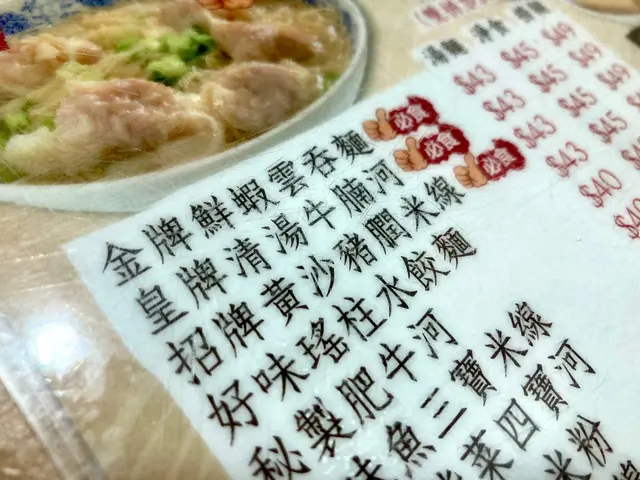 湯麵 淨食
金牌鮮蝦雲吞麵 必食 $43 $45 $49
皇牌清湯牛腩河 必食 $43 $45 $49
招牌黃沙豬膶米線 必食 $43 $45 $49
好味瑤柱水餃麵 $43 $45
秘製肥牛河 $40
魚三寶米線 $40
菜四寶河
米粉